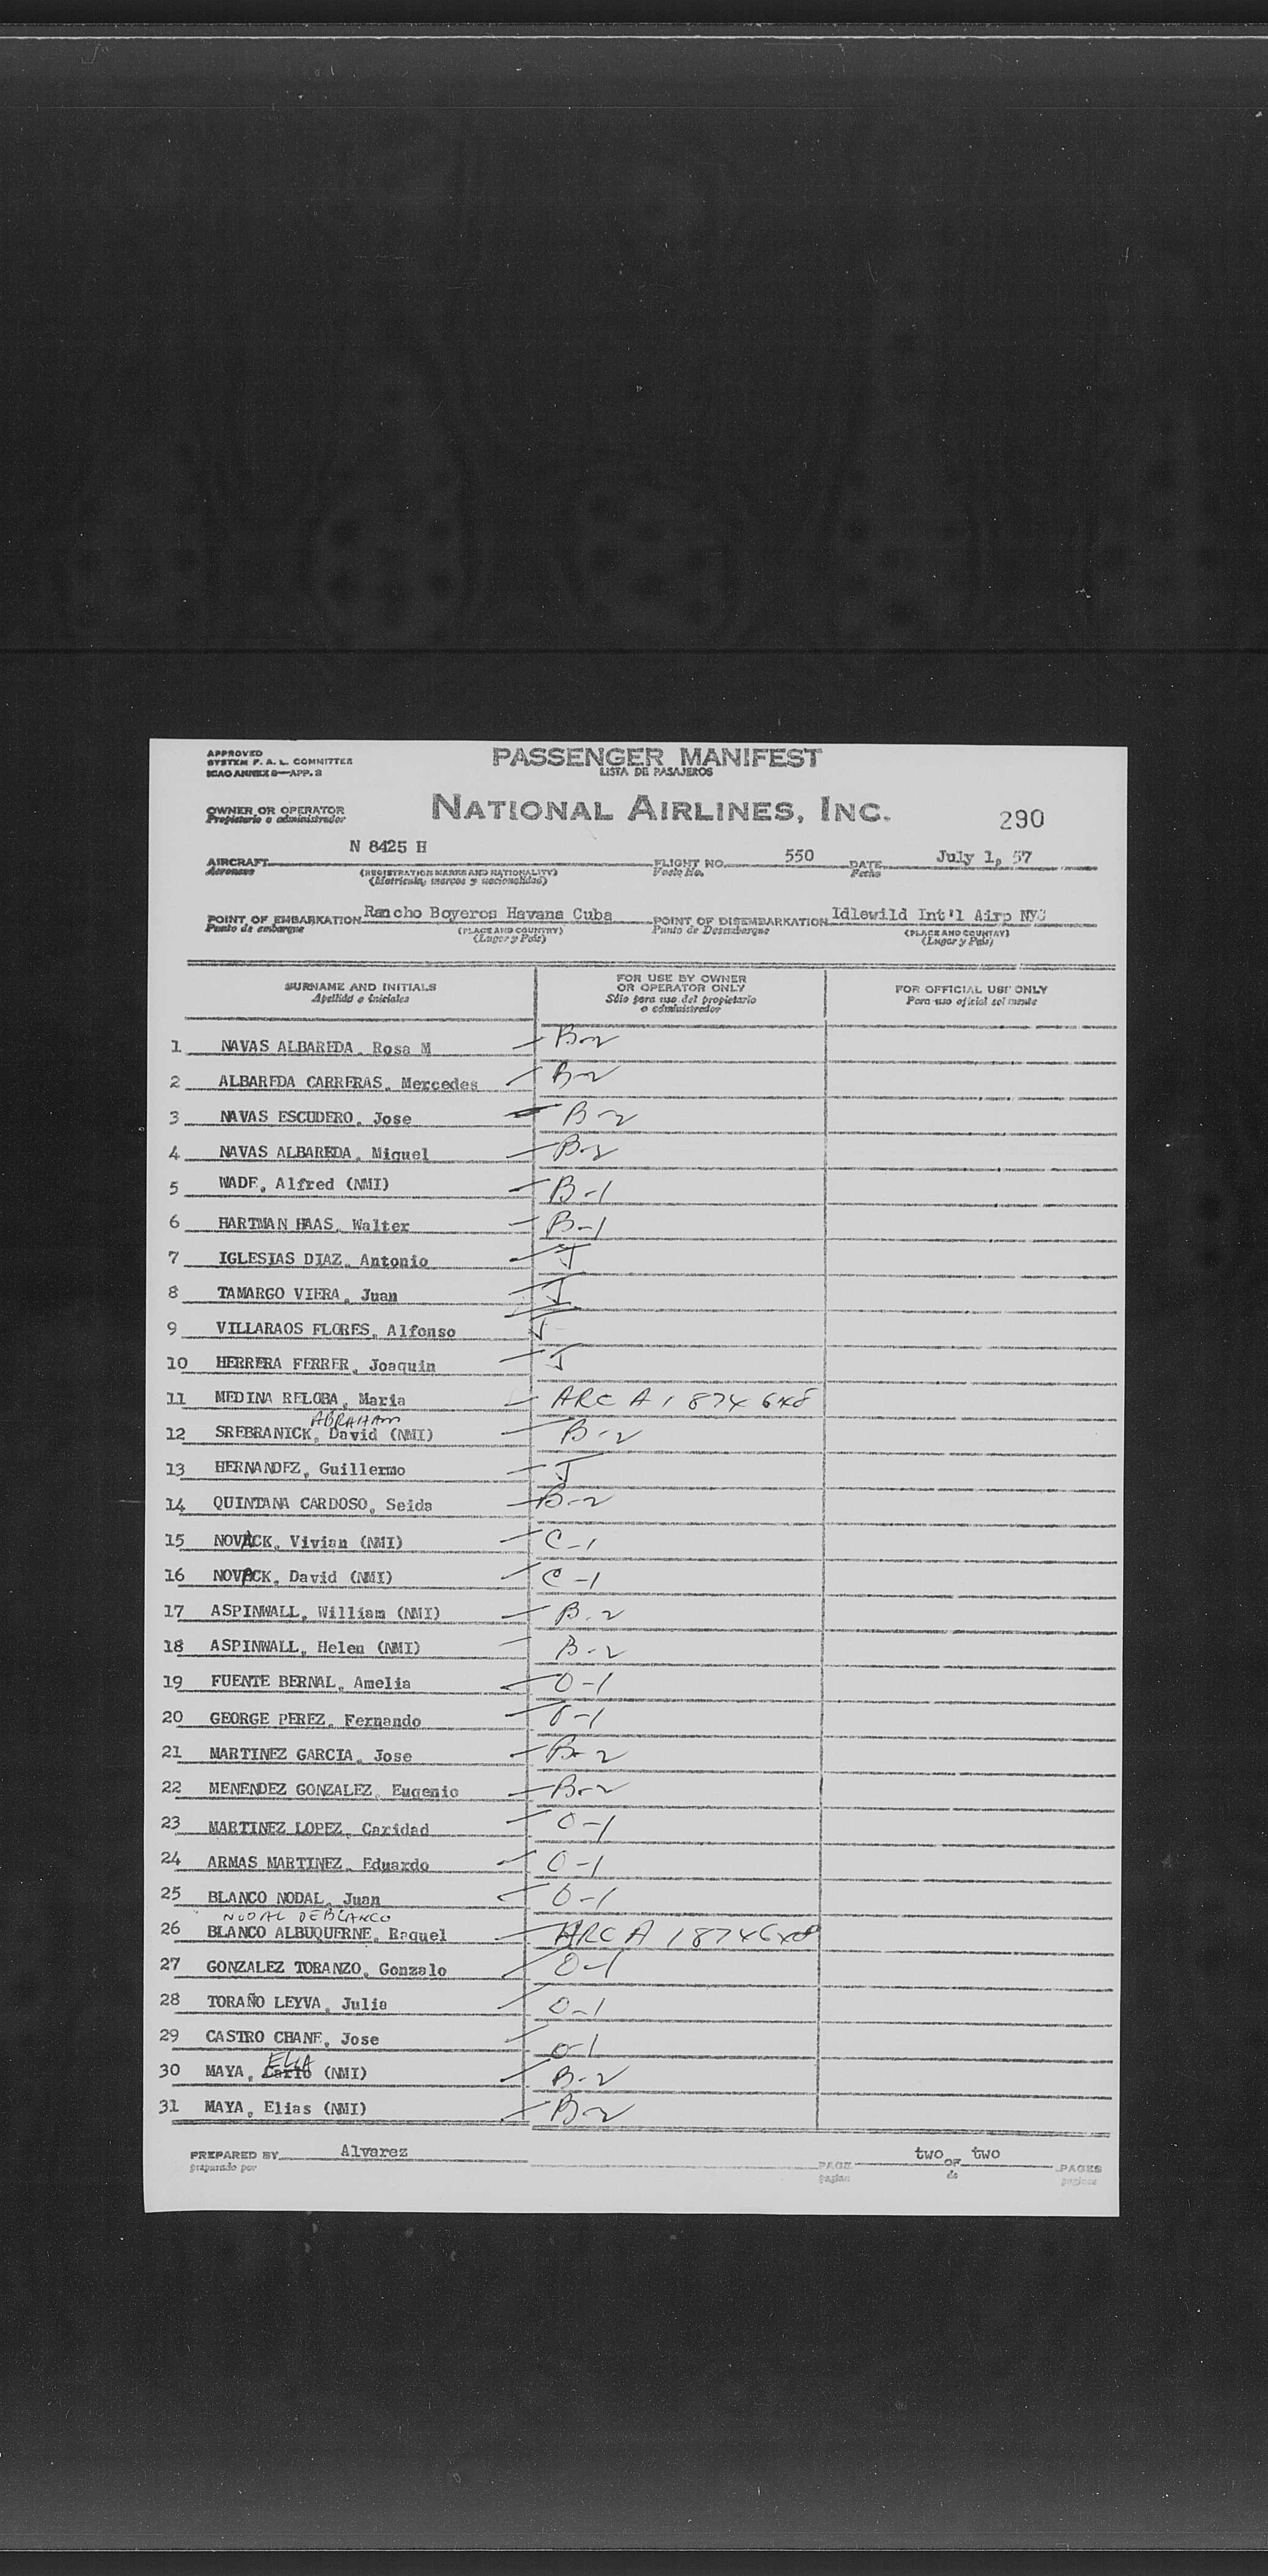 APPROVED
SYSTEM F. A. L. COMMITTEE
ICAO ANNEX 9—APP. 2
PASSENGER MANIFEST
LISTA DE PASAJEROS
OWNER OR OPERATOR
Propietario o administrador
NATIONAL AIRLINES, INC.
290
AIRCRAFT N 8425 H FLIGHT NO. 550 DATE July 1, 57
Aeronave (REGISTRATION MARKS AND NATIONALITY) Vuelo No. Fecha
(Matricula, marcas y nacionalidad)
POINT OF EMBARKATION Rancho Boyeros Havana Cuba POINT OF DISEMBARKATION Idlewild Int'l Airp NYC
Punto de embarque (PLACE AND COUNTRY) Punto de Desembarque (PLACE AND COUNTRY)
(Lugar y Pais) (Lugar y Pais)
SURNAME AND INITIALS
Apellido e iniciales
FOR USE BY OWNER
OR OPERATOR ONLY
Sólo para uso del propietario
o administrador
FOR OFFICIAL USE ONLY
Para uso oficial solmente
1 NAVAS ALBAREDA, Rosa M B-2
2 ALBAREDA CARRERAS, Mercedes B-2
3 NAVAS ESCUDERO, Jose B-2
4 NAVAS ALBAREDA, Miguel B-2
5 WADE, Alfred (NMI) B-1
6 HARTMAN HAAS, Walter B-1
7 IGLESIAS DIAZ, Antonio J
8 TAMARGO VIERA, Juan J
9 VILLARAOS FLORES, Alfonso J
10 HERRERA FERRER, Joaquin J
11 MEDINA RELOBA, Maria ARC A
ABRAHAM
12 SREBRANICK, David (NMI) B-2
13 HERNANDEZ, Guillermo J
14 QUINTANA CARDOSO, Seida B-2
15 NOVACK, Vivian (NMI) C-1
16 NOVACK, David (NMI) C-1
17 ASPINWALL, William (NMI) B-2
18 ASPINWALL, Helen (NMI) B-2
19 FUENTE BERNAL, Amelia O-1
20 GEORGE PEREZ, Fernando O-1
21 MARTINEZ GARCIA, Jose B-2
22 MENENDEZ GONZALEZ, Eugenio B-2
23 MARTINEZ LOPEZ, Caridad O-1
24 ARMAS MARTINEZ, Eduardo O-1
25 BLANCO NODAL, Juan O-1
NODAL DE BLANCO
26 BLANCO ALBUQUERNE, Raquel ARC A
27 GONZALEZ TORANZO, Gonzalo O-1
28 TORAÑO LEYVA, Julia O-1
29 CASTRO CHANE, Jose O-1
ELIA
30 MAYA, Carlo (NMI) B-2
31 MAYA, Elias (NMI) B-2
PREPARED BY Alvarez PAGE two OF two PAGES
preparado por pagina de paginas